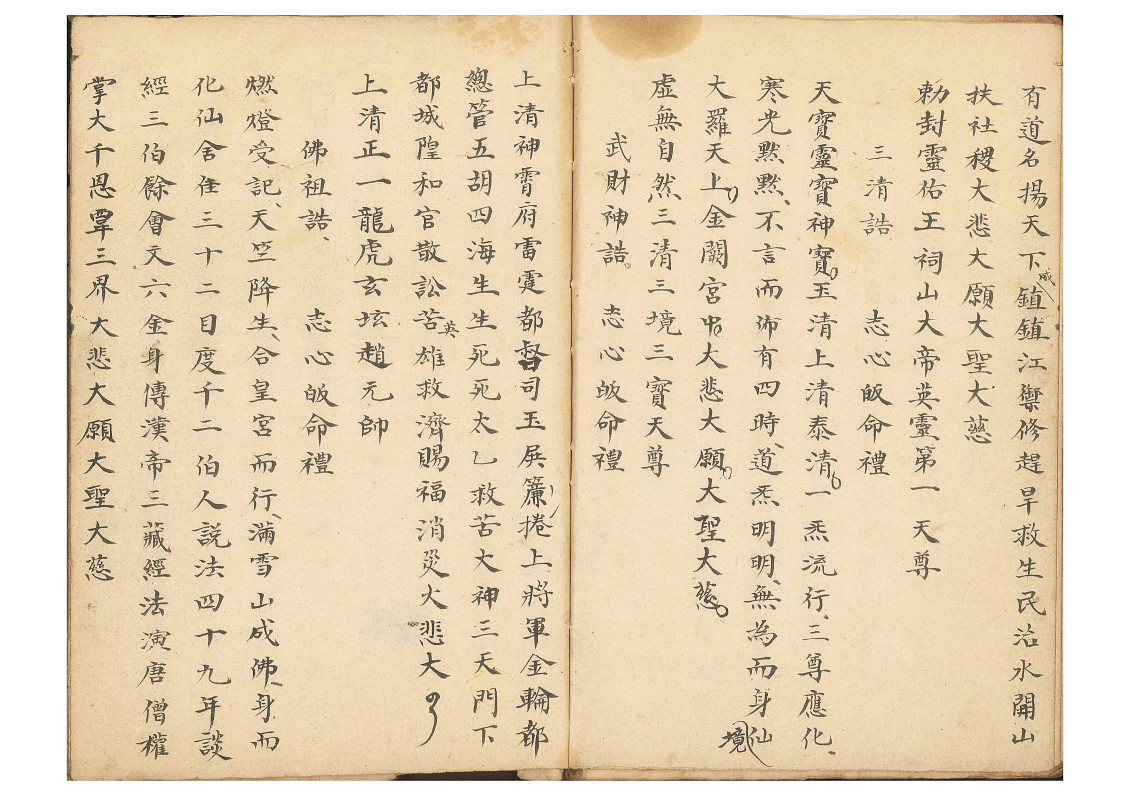 有道名揚天下威鎮鎮江禦修趕旱救生民治水開山
扶社稷大悲大願大聖大慈
勅封靈佑王祠山大帝英靈第一天尊
三清誥　志心皈命禮
天寶靈寶神寶玉清上清泰清一炁流行、三尊應化、
寒光黙黙、不言而佈有四時、道炁明明、無為而身仙境
大羅天上金闕宮中大悲大願大聖大慈
虛無自然三清三境三寶天尊
武財神誥。　志心皈命禮
上清神霄府雷霆都督司玉屏簾捲上將軍金輪都
總管五胡四海生生死死太乙救苦大神三天門下
都城隍和官散訟苦英雄救濟賜福消災大悲大
上清正一龍虎玄坛趙元帥
佛祖誥、　志心皈命禮
燃燈受記、天竺降生、合皇宮而行、滿雪山成佛、身而
化仙舍住三十二目度千二伯人説法四十九年談
經三伯餘會文六金身傳漢帝三藏經法演唐僧權
掌大千恩覃三界大悲大願大聖大慈